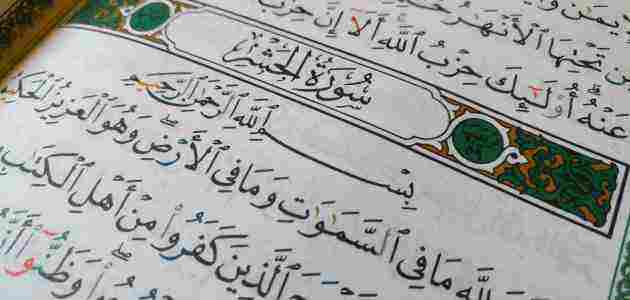 من تحتها الأنهر
عنه أولئك حزب الله ألا إن حزب
سورة الحشر
بسم الله الرحمن الرحيم
لله ما في السموت وما في الأرض وهو العزيز الحكيم
الذين كفروا من أهل الكتب
وظنوا